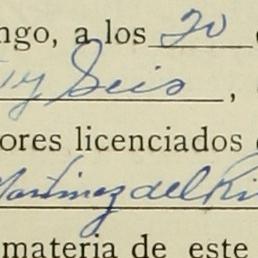 ngo, a los 20
y Seis,
ores licenciados
Martinez del Ri
materia de este